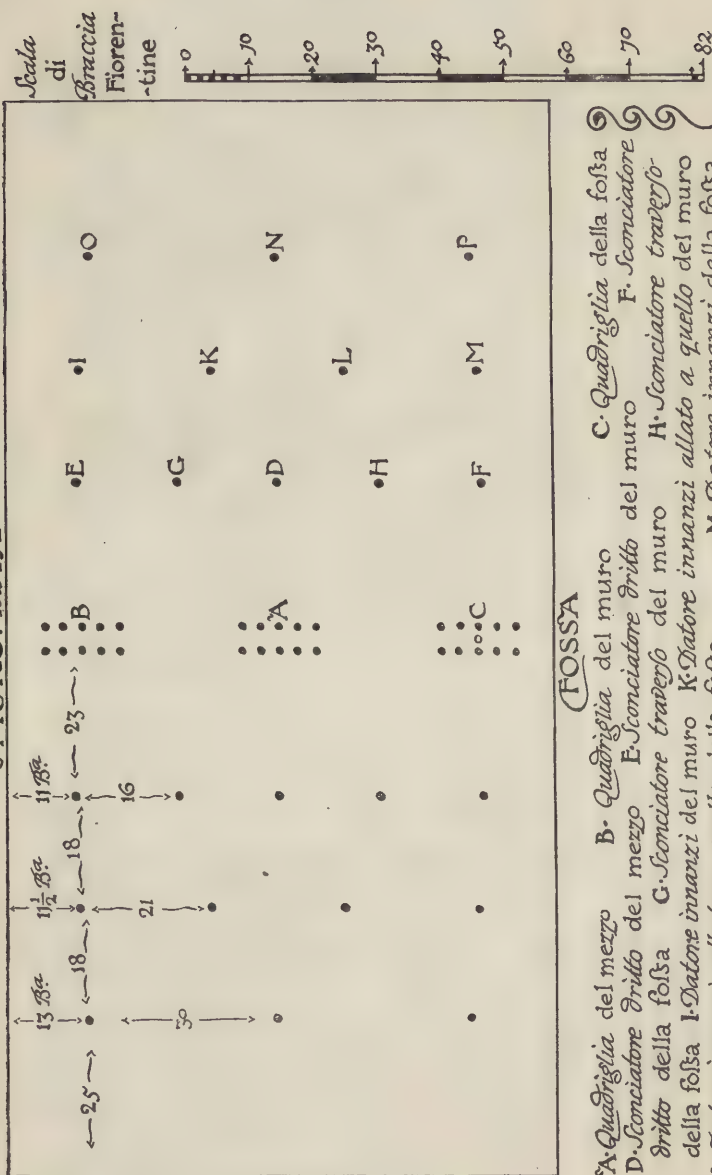 Scala
di
Braccia
Fioren-
-tine
0 10 20 30 40 50 60 70 82
13 Bᵃ 11½ Bᵃ 11 Bᵃ
25 18 18 23
30 21 16
B E I O
G K
A D N
H L
C F M P
FOSSA
A·Quadriglia del mezzo B·Quadriglia del muro C·Quadriglia della foſsa
D·Sconciatore dritto del mezzo E·Sconciatore dritto del muro F·Sconciatore
dritto della foſsa G·Sconciatore traverſo del muro H·Sconciatore traverſo
della foſsa I·Datore innanzi del muro K·Datore innanzi allato a quello del muro
M·Datore innanzi della foſsa